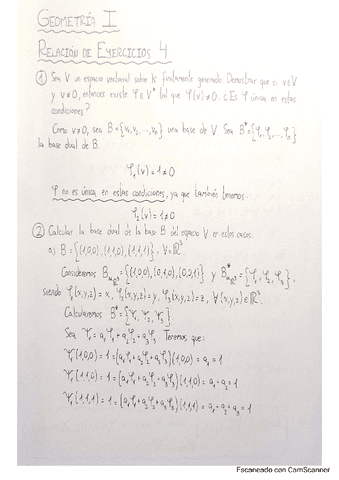 GEOMETRÍA I
RELACIÓN DE EJERCICIOS 4
① Sea V un espacio vectorial sobre K finitamente generado. Demostrar que si v∈V
y v≠0, entonces existe φ∈V* tal que φ(v)≠0. ¿Es φ única en estas
condiciones?
Como v≠0, sea B={v, v₂, ..., vₙ} una base de V. Sea B*={φ₁, φ₂, ..., φₙ}
la base dual de B.
φ₁(v)=1≠0
φ no es única en estas condiciones, ya que también tenemos
φ₂(v)=1≠0
② Calcular la base dual de la base B del espacio V en estos casos.
a) B={(1,0,0), (1,1,0), (1,1,1)}, V=ℝ³.
Consideremos Bᵤℝ³={(1,0,0), (0,1,0), (0,0,1)} y Bᵤℝ³*={φ₁, φ₂, φ₃},
siendo φ₁(x,y,z)=x, φ₂(x,y,z)=y, φ₃(x,y,z)=z, ∀(x,y,z)∈ℝ³.
Calcularemos B*={Ψ₁, Ψ₂, Ψ₃}
Sea Ψ₁=a₁φ₁+a₂φ₂+a₃φ₃. Tenemos que:
Ψ₁(1,0,0)=1=(a₁φ₁+a₂φ₂+a₃φ₃)(1,0,0)=a₁=1
Ψ₁(1,1,0)=1=(a₁φ₁+a₂φ₂+a₃φ₃)(1,1,0)=a₁+a₂=1
Ψ₁(1,1,1)=1=(a₁φ₁+a₂φ₂+a₃φ₃)(1,1,1)=a₁+a₂+a₃=1
Escaneado con CamScanner